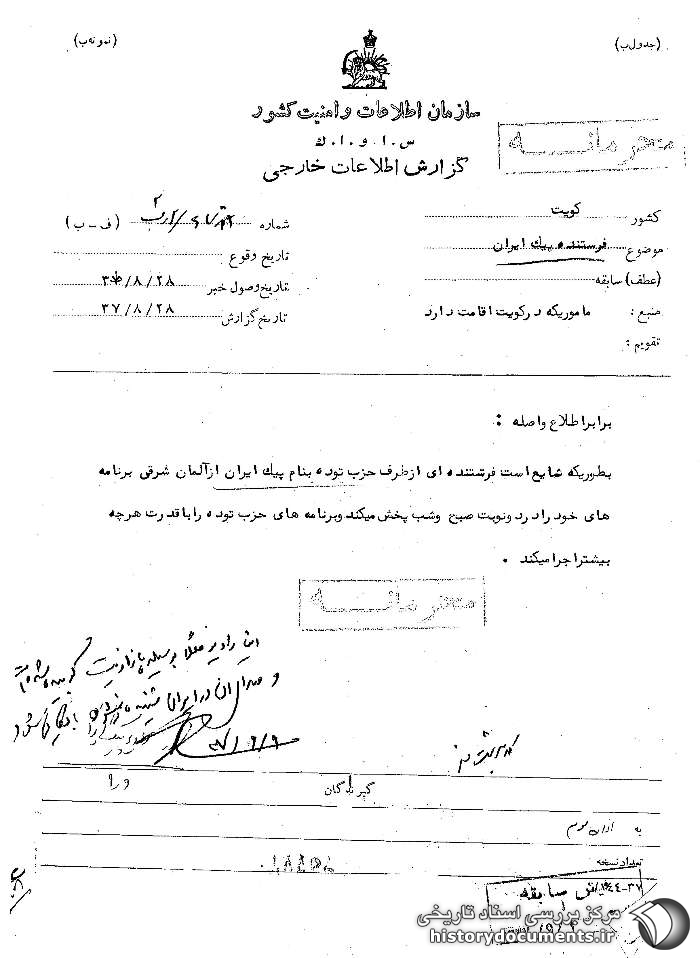 (جدول ب)
(نمونه ب)
سازمان اطلاعات و امنیت کشور
س.ا.و.ا.ك
گزارش اطلاعات خارجی
محرمانه
کشور کویت
موضوع فرستنده پیك ایران
(عطف) سابقه
منبع : ماموریکه درکویت اقامت دارد
تقویم :
شماره (ف-ب)
تاریخ وقوع
تاریخ وصول خبر ۳۷/۸/۲۸
تاریخ گزارش ۳۷/۸/۲۸
برابر اطلاع واصله :
بطوریکه شایع است فرستنده ای ازطرف حزب توده بنام پیك ایران ازآلمان شرقی برنامه
های خود رادردونوبت صبح وشب پخش میکند وبرنامه های حزب توده راباقدرت هرچه
بیشتراجرامیکند .
محرمانه
این رادیو فعلا بوسیله پارازیت
در ایران
۳۷/۹/۹
گیرندگان
به اداره سوم
تعداد نسخه
سابقه
مرکز بررسی اسناد تاریخی
historydocuments.ir